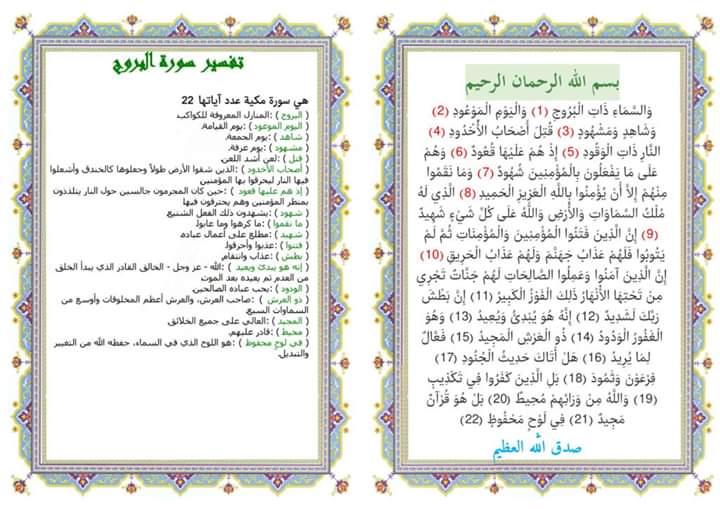 بسم الله الرحمان الرحيم
وَالسَّمَاءِ ذَاتِ الْبُرُوجِ (1) وَالْيَوْمِ الْمَوْعُودِ (2)
وَشَاهِدٍ وَمَشْهُودٍ (3) قُتِلَ أَصْحَابُ الْأُخْدُودِ (4)
النَّارِ ذَاتِ الْوَقُودِ (5) إِذْ هُمْ عَلَيْهَا قُعُودٌ (6) وَهُمْ
عَلَى مَا يَفْعَلُونَ بِالْمُؤْمِنِينَ شُهُودٌ (7) وَمَا نَقَمُوا
مِنْهُمْ إِلَّا أَنْ يُؤْمِنُوا بِاللَّهِ الْعَزِيزِ الْحَمِيدِ (8) الَّذِي لَهُ
مُلْكُ السَّمَاوَاتِ وَالْأَرْضِ وَاللَّهُ عَلَى كُلِّ شَيْءٍ شَهِيدٌ
(9) إِنَّ الَّذِينَ فَتَنُوا الْمُؤْمِنِينَ وَالْمُؤْمِنَاتِ ثُمَّ لَمْ
يَتُوبُوا فَلَهُمْ عَذَابُ جَهَنَّمَ وَلَهُمْ عَذَابُ الْحَرِيقِ (10)
إِنَّ الَّذِينَ آمَنُوا وَعَمِلُوا الصَّالِحَاتِ لَهُمْ جَنَّاتٌ تَجْرِي
مِنْ تَحْتِهَا الْأَنْهَارُ ذَلِكَ الْفَوْزُ الْكَبِيرُ (11) إِنَّ بَطْشَ
رَبِّكَ لَشَدِيدٌ (12) إِنَّهُ هُوَ يُبْدِئُ وَيُعِيدُ (13) وَهُوَ
الْغَفُورُ الْوَدُودُ (14) ذُو الْعَرْشِ الْمَجِيدُ (15) فَعَّالٌ
لِمَا يُرِيدُ (16) هَلْ أَتَاكَ حَدِيثُ الْجُنُودِ (17)
فِرْعَوْنَ وَثَمُودَ (18) بَلِ الَّذِينَ كَفَرُوا فِي تَكْذِيبٍ
(19) وَاللَّهُ مِنْ وَرَائِهِمْ مُحِيطٌ (20) بَلْ هُوَ قُرْآنٌ
مَجِيدٌ (21) فِي لَوْحٍ مَحْفُوظٍ (22)
صدق الله العظيم
تفسير سورة البروج
هي سورة مكية عدد آياتها 22
( البروج ) :المنازل المعروفة للكواكب.
( اليوم الموعود ) :يوم القيامة.
( شاهد ) :يوم الجمعة.
( مشهود ) :يوم عرفة.
( قتل ) :لعن أشد اللعن.
( أصحاب الأخدود ) :الذين شقوا الأرض طولاً وجعلوها كالخندق وأشعلوا
فيها النار ليحرقوا بها المؤمنين
( إذ هم عليها قعود ) :حين كان المجرمون جالسين حول النار يتلذذون
بمنظر المؤمنين وهم يحترقون فيها
( شهود ) :يشهدون ذلك الفعل الشنيع.
( ما نقموا ) :ما كرهوا وما عابوا.
( شهيد ) :مطلع على أعمال عباده.
( فتنوا ) :عذبوا وأحرقوا.
( بطش ) :عذاب وانتقام.
( إنه هو يبدئ ويعيد ) :الله - عز وجل - الخالق القادر الذي يبدأ الخلق
من العدم ثم يعيده بعد الموت
( الودود ) :يحب عباده الصالحين.
( ذو العرش ) :صاحب العرش، والعرش أعظم المخلوقات وأوسع من
السماوات السبع.
( المجيد ) :العالي على جميع الخلائق.
( محيط ) :قادر عليهم.
( في لوح محفوظ ) :هو اللوح الذي في السماء، حفظه الله من التغيير
والتبديل.